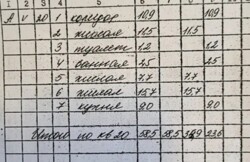 1 2 3 4 5 6 7 8 9
A V 20 1 коридор 10,9 10,9
2 жилая 11,5 11,5
3 туалет 1,2 1,2
4 ванная 2,5 2,5
5 жилая 7,7 7,7
6 жилая 15,7 15,7
7 кухня 9,0 9,0
Итого по кв 20 58,5 58,5 34,9 23,6